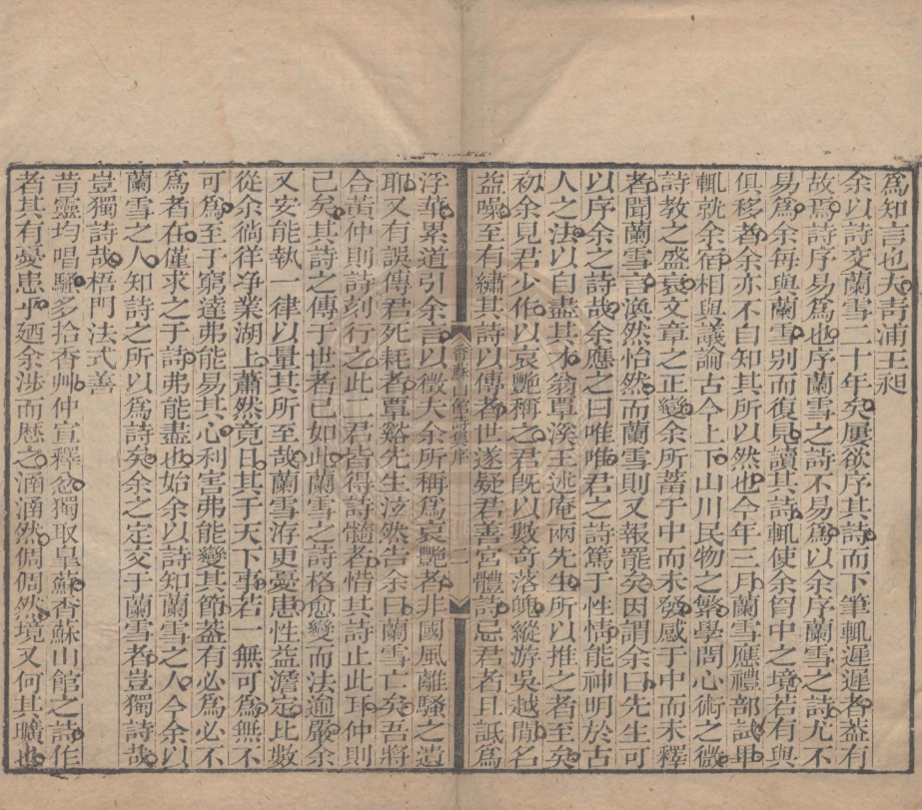 為知言也夫青浦王昶
余以詩交蘭雪二十年矣屢欲序其詩而下筆輒遲遲者蓋有
故焉詩序易為也序蘭雪之詩不易為以余序蘭雪之詩尤不
易為余每與蘭雪別而復見讀其詩輒使余胷中之境若有與
俱移者余亦不自知其所以然也今年三月蘭雪應禮部試甲
輒就余宿相與議論古今上下山川民物之繁學問心術之微
詩教之盛衰文章之正變余所蓄于中而未發感于中而未釋
者聞蘭雪言渙然怡然而蘭雪則又報罷矣因謂余曰先生可
以序余之詩哉余應之曰唯唯君之詩篤于性情能神明於古
人之法以自盡其才翁覃溪王述庵兩先生所以推之者至矣
初余見君少作以哀艷稱之君旣以數奇落魄縱游吳越閒名
益噪至有繡其詩以傳者世遂疑君善宮體詩忌君者且詆為
香蘇山館詩集序
二
浮華累道引余言以徵夫余所稱為哀艷者非國風離騷之遺
耶又有誤傳君死耗者覃谿先生泣然告余曰蘭雪亡矣吾將
合黃仲則詩刻行之此二君皆得詩髓者惜其詩止此耳仲則
已矣其詩之傳于世者已如此蘭雪之詩格愈變而法逾嚴余
又安能執一律以量其所至哉蘭雪洊更憂患性益澹定比數
從余徜徉淨業湖上蕭然竟日其于天下事若一無可為無不
可為至于窮達弗能易其心利害弗能變其節蓋有必為必不
為者在僅求之于詩弗能盡也始余以詩知蘭雪之人今余以
蘭雪之人知詩之所以為詩矣余之定交于蘭雪者豈獨詩哉
豈獨詩哉梧門法式善
昔靈均唱騷多拾香艸仲宣釋忿獨取皐蘇香蘇山館之詩作
者其有憂患乎廼余涉而歷之涵涵然倜倜然境又何其曠也